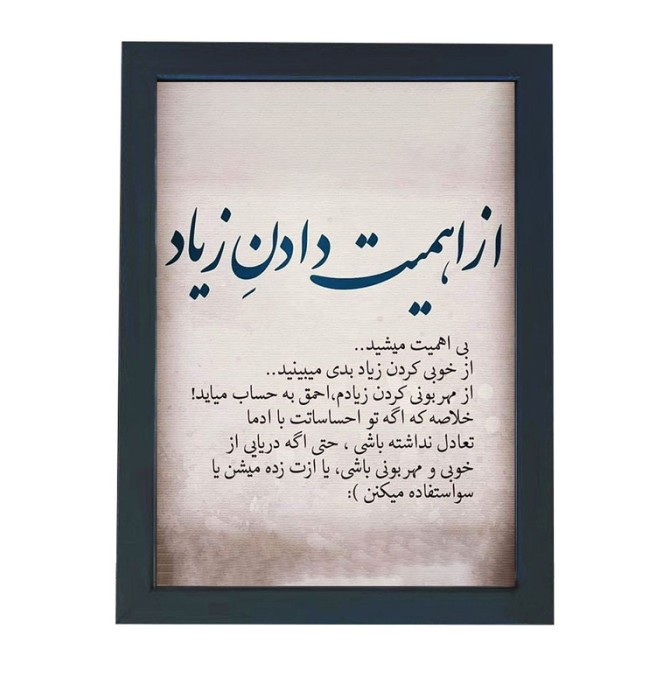 از اهمیت دادنِ زیاد
بی اهمیت میشید..
از خوبی کردن زیاد بدی میبینید..
از مهربونی کردن زیادم،احمق به حساب میاید!
خلاصه که اگه تو احساساتت با ادما
تعادل نداشته باشی ، حتی اگه دریایی از
خوبی و مهربونی باشی، یا ازت زده میشن یا
سواستفاده میکنن ):